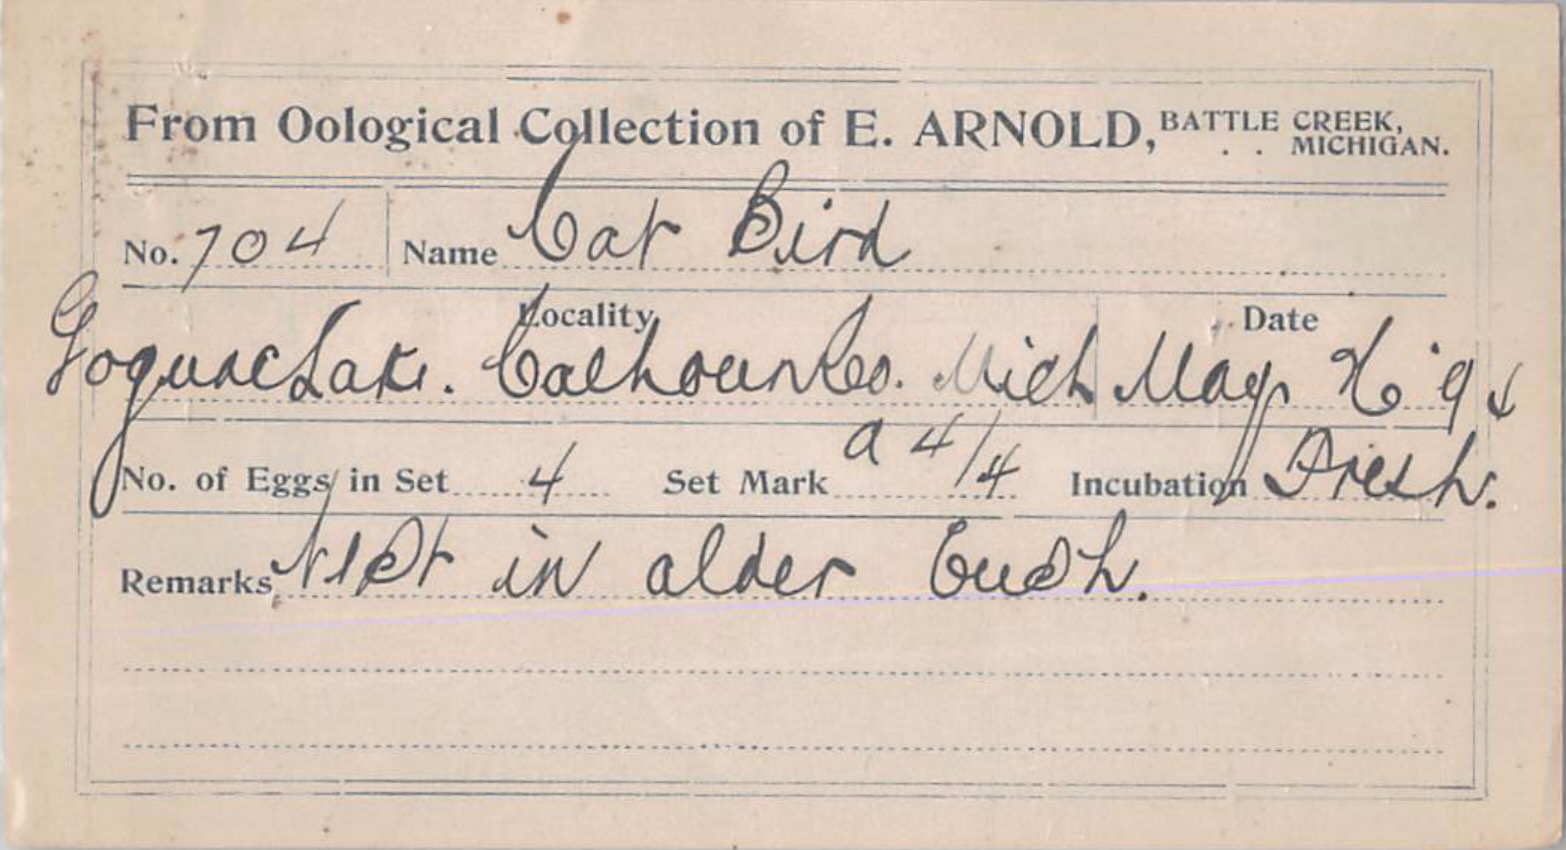 From Oological Collection of E. ARNOLD, BATTLE CREEK, . . MICHIGAN.
No. 704 Name Cat Bird
Locality Date
Goguac Lake. Calhoun Co. Mich May '9
No. of Eggs in Set 4 Set Mark a 4/4 Incubation Fresh.
Remarks Nest in alder bush.